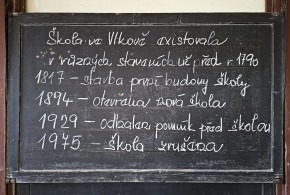 Škola ve Vlkově existovala
v různých staveních už před r. 1790
1817 – stavba první budovy školy
1894 – otevřena nová škola
1929 – odhalen pomník před školou
1975 – škola zrušena